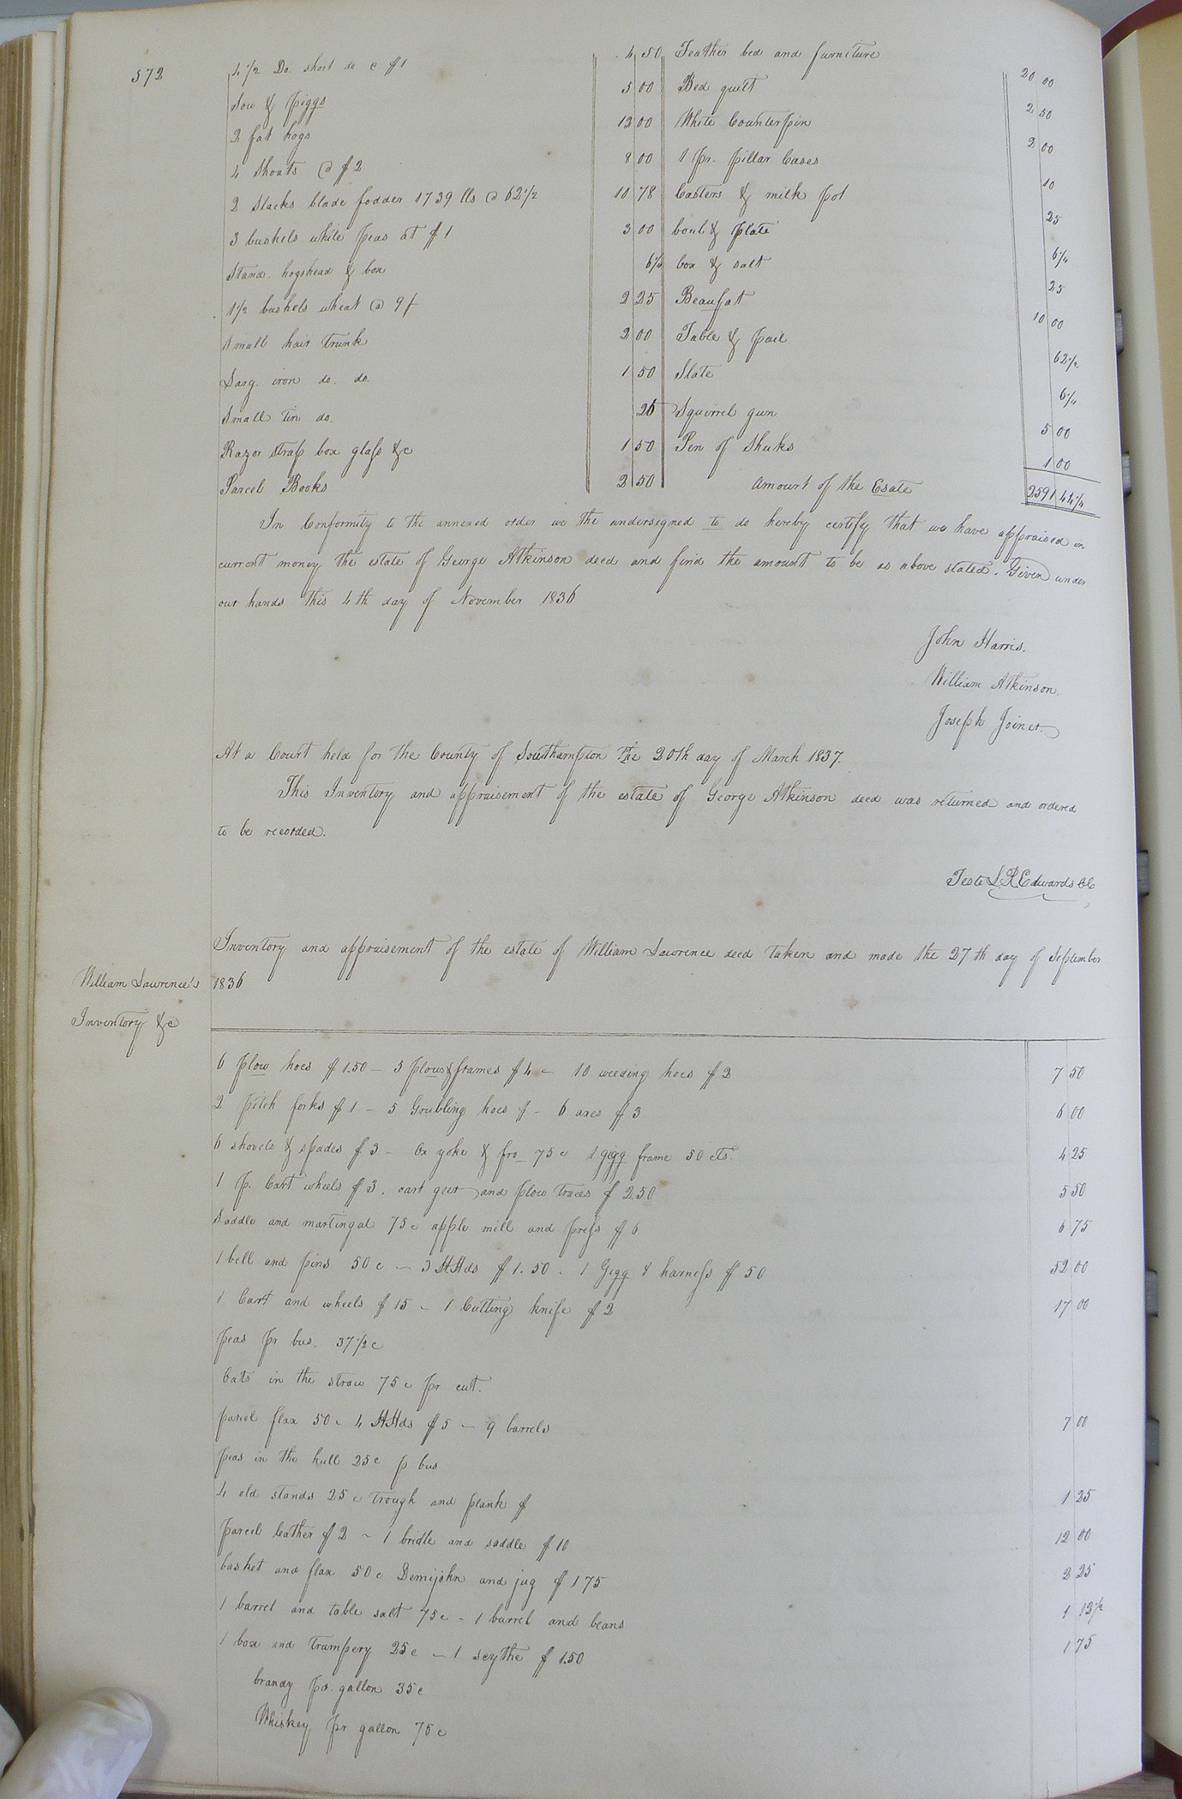 572
4 1/2 Do. short do @ $1 4 50
Sow & piggs 5 00
2 fat hogs 12 00
4 Shoats @ $2 8 00
2 Stacks blade fodder 1739 lbs @ 62 1/2 10 78
3 bushels white peas at $1 3 00
Stand. hogshead & box 6 1/4
1 1/2 bushels wheat @ 9/ 2 25
Small hair trunk 2 00
Larg. iron do. do. 1 50
Small tin do. 25
Razor strap box glass &c 1 50
Parcel Books 2 50
Feather bed and furniture 20 00
Bed quilt 2 50
White Counterpin 2 00
1 Pr. pillar Cases 10
Casters & milk pot 25
boul & plate 6 1/4
box & salt 25
Beaufat 10 00
Table & pail 62 1/2
Slate 6 1/4
Squirrel gun 5 00
Pen of Shuks 1 00
Amount of the Esate 2591 44 1/4
In Conformity to the annexed order we the undersigned to do hereby certify that we have appraised in
current money the estate of George Atkinson decd and find the amount to be as above stated. Given under
our hands this 4th day of November 1836
John Harris.
William Atkinson.
Joseph Joiner.
At a Court held for the County of Southampton the 20th day of March 1837.
This Inventory and appraisement of the estate of George Atkinson decd was returned and ordered
to be recorded.
Teste L.R. Edwards CC
Inventory and appraisement of the estate of William Lawrence decd taken and made the 27th day of September
1836
William Lawrence's
Inventory &c
6 plow hoes $1.50 - 5 plows & frames $4 - 10 weeding hoes $2 7 50
2 pitch forks $1 - 5 Grubling hoes $ - 6 axes $3 6 00
6 shovels & spades $3 - Ox yoke & fro 75c 1 gigg frame 50 cts. 4 25
1 p. Cart wheels $3. cart geer and plow traces $2.50 5 50
Saddle and martingal 75c apple mill and press $6 6 75
1 bell and pins 50c - 3 HHds $1.50 - 1 Gigg & harness $50 52 00
1 Cart and wheels $15 - 1 Cutting knife $2 17 00
peas pr bus. 37 1/2 c
Oats in the straw 75c pr cut.
parcel flax 50c 4 HHds $5 - 9 barrels 7 00
peas in the hull 25c p bus
4 old stands 25c trough and plank $ 1 25
parcel leather $2 - 1 bridle and saddle $10 12 00
basket and flax 50c Demijohn and jug $1 75 2 25
1 barrel and table salt 75c - 1 barrel and beans 1 12 1/2
1 box and trumpery 25c - 1 scythe $1.50 1 75
brandy pr. gallon 35c
Whiskey pr gallon 75c